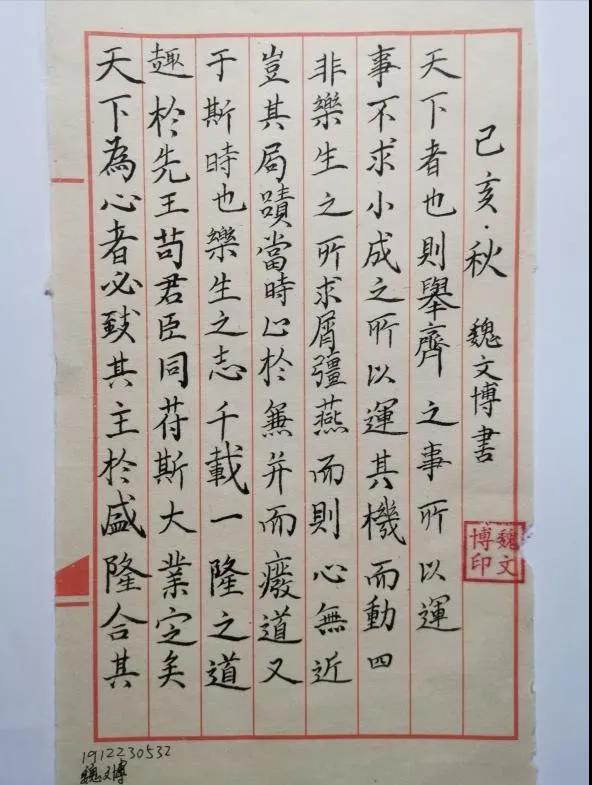 天下為心者必致其主於盛隆合其
趣於先王苟君臣同苻斯大業定矣
于斯時也樂生之志千載一隆之道
豈其局蹟當時止於兼并而癈道又
非樂生之所求屑彊燕而則心無近
事不求小成之所以運其機而動四
天下者也則舉齊之事所以運
己亥·秋 魏文博書
魏文
博印
1912230532
魏文博